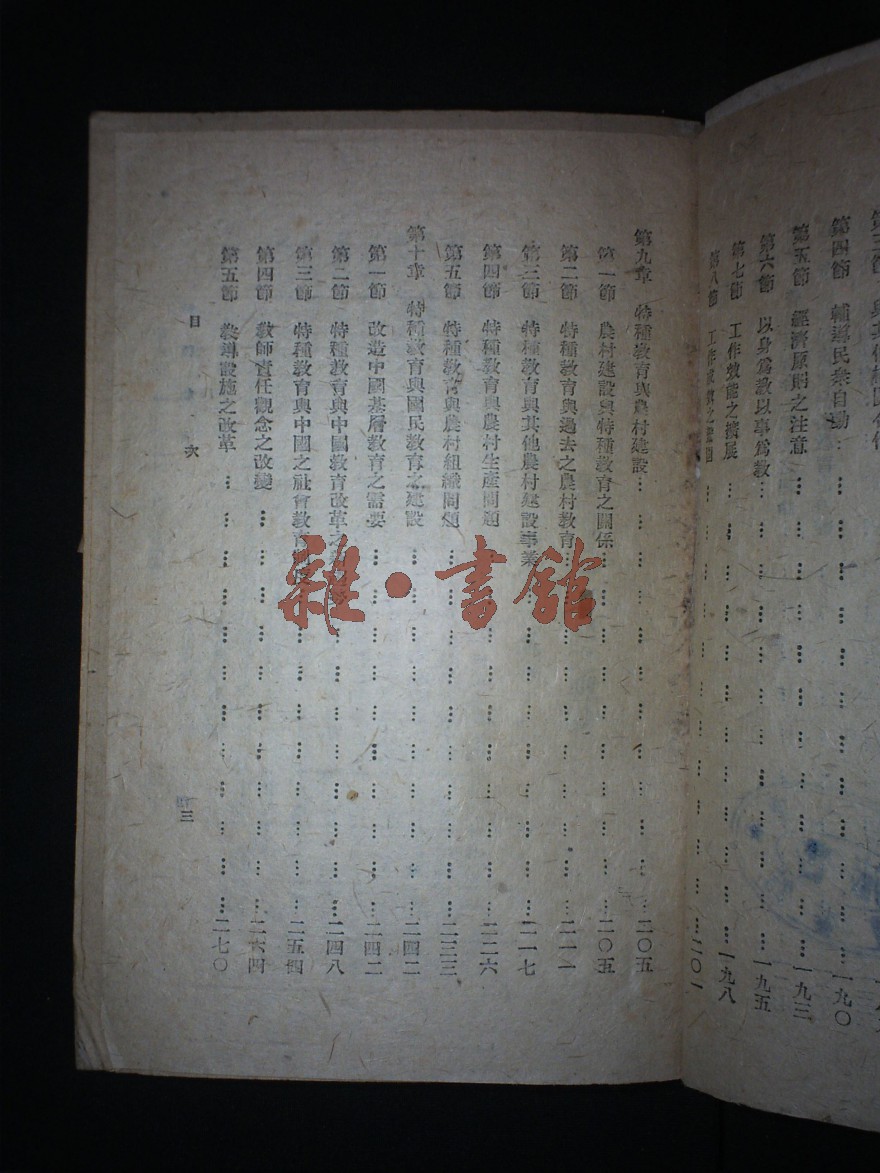 第四節　輔導民衆自動………一九〇
第五節　經濟原則之注意………一九三
第六節　以身爲敎以事爲敎………一九五
第七節　工作效能之擴展………一九八
第八節　工作　之　………二〇一
第九章　特種敎育與農村建設………二〇五
第一節　農村建設與特種敎育之關係………二〇五
第二節　特種敎育與過去之農村敎育………二一一
第三節　特種敎育與其他農村建設事業………二一七
第四節　特種敎育與農村生產問題………二二六
第五節　特種敎育與農村組織問題………二三三
第十章　特種敎育與國民敎育之建設………二四二
第一節　改造中國基層敎育之需要………二四二
第二節　特種敎育與中國敎育改革之………二四八
第三節　特種敎育與中國之社會敎育………二五四
第四節　敎師責任觀念之改變………二六四
第五節　敎導設施之改革………二七〇
目次
三
雜·書館